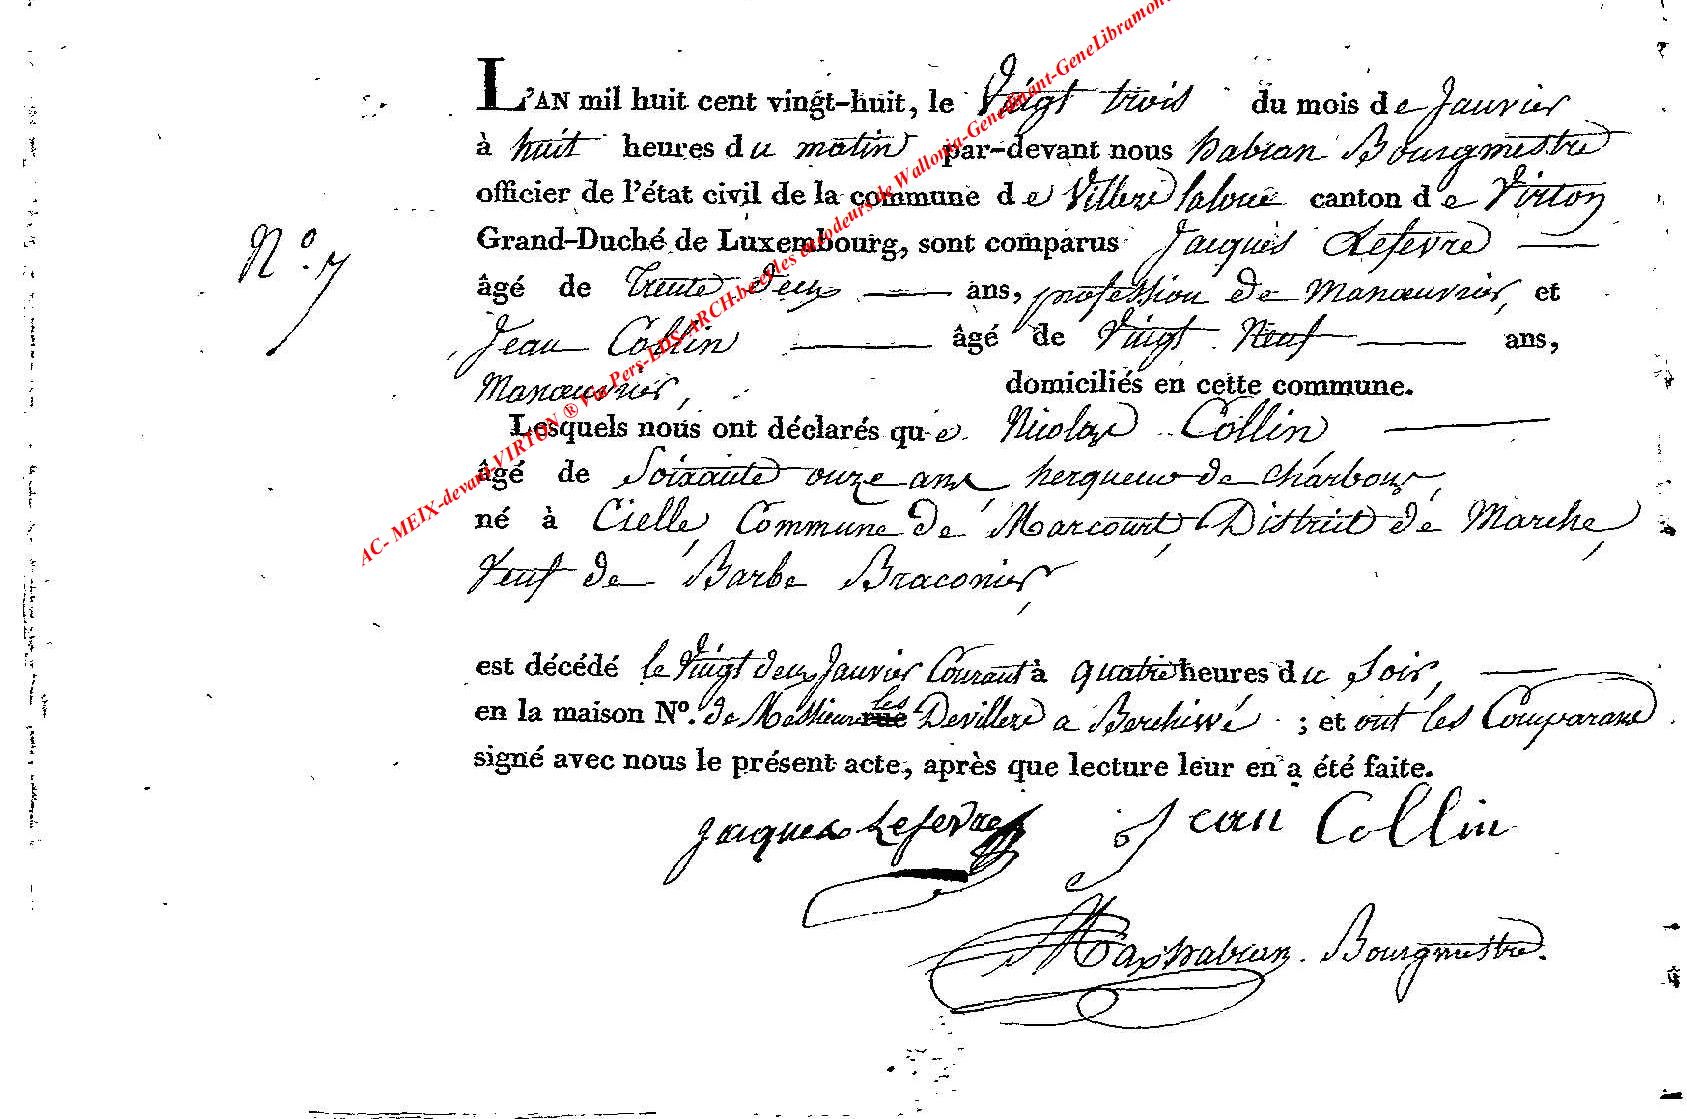 L'AN mil huit cent vingt-huit, le Vingt trois du mois de Janvier
à huit heures du matin par-devant nous habran Bourgmestre
officier de l'état civil de la commune de Villers laloue canton de Virton
N.° 7 Grand-Duché de Luxembourg, sont comparus Jacques Lefevre
âgé de trente deux ans, profession de Manœuvrier, et
Jean Collin âgé de Vingt Neuf ans,
Manœuvrier, domiciliés en cette commune.
Lesquels nous ont déclarés que Nicolas Collin
âgé de Soixante onze ans, herqueur de charbons,
né à Cielle, Commune de Marcourt, District de Marche,
Veuf de Barbe Braconier,
est décédé le Vingt deux Janvier Courant à quatre heures du Soir,
en la maison N°. de Messieurs les Devillers a Berchiwé ; et ont les Comparans
signé avec nous le présent acte, après que lecture leur en a été faite.
Jacques Lefevre Jean Collin
habran Bourgmestre.
AC- MEIX-devant-VIRTON ® Via Pers-LDS-ARCH.be et les encodeurs de Wallonia-GeneDinant-GeneLibramont